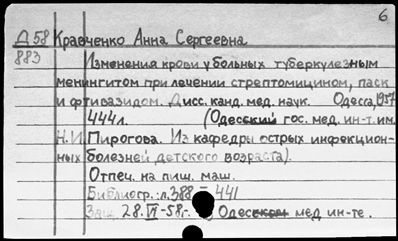 6
Д 58 Кравченко Анна Сергеевна
883 Изменения крови у больных туберкулезным
менингитом при лечении стрептомицином, паск
и фтивазидом. Дисс. канд. мед. наук. Одесса, 1957
444л. (Одесский гос. мед. ин-т. им.
Н.И. Пирогова. Из кафедры острых инфекцион-
ных болезней детского возраста).
Отпеч. на пиш. маш.
Библиогр.: л. 388-441
Защ. 28.VI-58г. в Одесском мед ин-те.